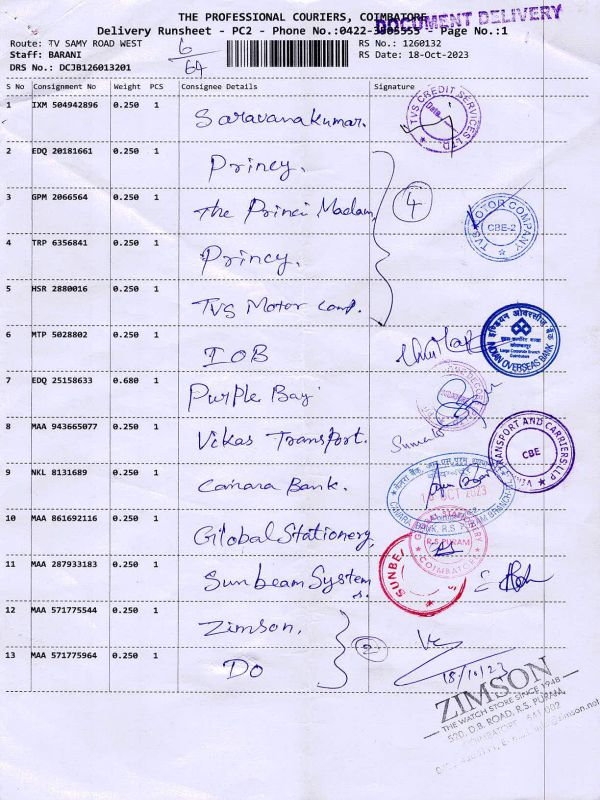 THE PROFESSIONAL COURIERS, COIMBATORE
DOCUMENT DELIVERY
Delivery Runsheet - PC2 - Phone No.:0422-3805555 - Page No.:1
Route: TV SAMY ROAD WEST
6
RS No.: 1260132
Staff: BARANI
RS Date: 18-Oct-2023
DRS No.: DCJB126013201
64
S No Consignment No Weight PCS Consignee Details Signature
1 IXM 504942896 0.250 1 Saravanakumar.
TVS CREDIT SERVICES LTD.
Date
2 EDQ 20181661 0.250 1 Princy.
3 GPM 2066564 0.250 1 The Princi Madam,
4
TVS MOTOR COMPANY
CBE-2
4 TRP 6356841 0.250 1 Princy.
5 HSR 2880016 0.250 1 TVS Motor Comp.
6 MTP 5028802 0.250 1 IOB
इण्डियन ओवरसीज़ बैंक
INDIAN OVERSEAS BANK
7 EDQ 25158633 0.680 1 Purple Bay
8 MAA 943665077 0.250 1 Vikas Transport.
TRANSPORT AND CARRIERS LLP
CBE
9 NKL 8131689 0.250 1 Canara Bank.
OCT 2023
CANARA BANK, R.S. PURAM BRANCH
10 MAA 861692116 0.250 1 Global Stationery,
GLOBAL STATIONERY
R.S. PURAM
COIMBATORE
11 MAA 287933183 0.250 1 Sunbeam Systems.
SUNBE
12 MAA 571775544 0.250 1 Zimson,
2
13 MAA 571775964 0.250 1 Do
18/10/23
ZIMSON
THE WATCH STORE SINCE 1948
530, D.B. ROAD, R.S. PURAM,
COIMBATORE - 641 002
zimson.net